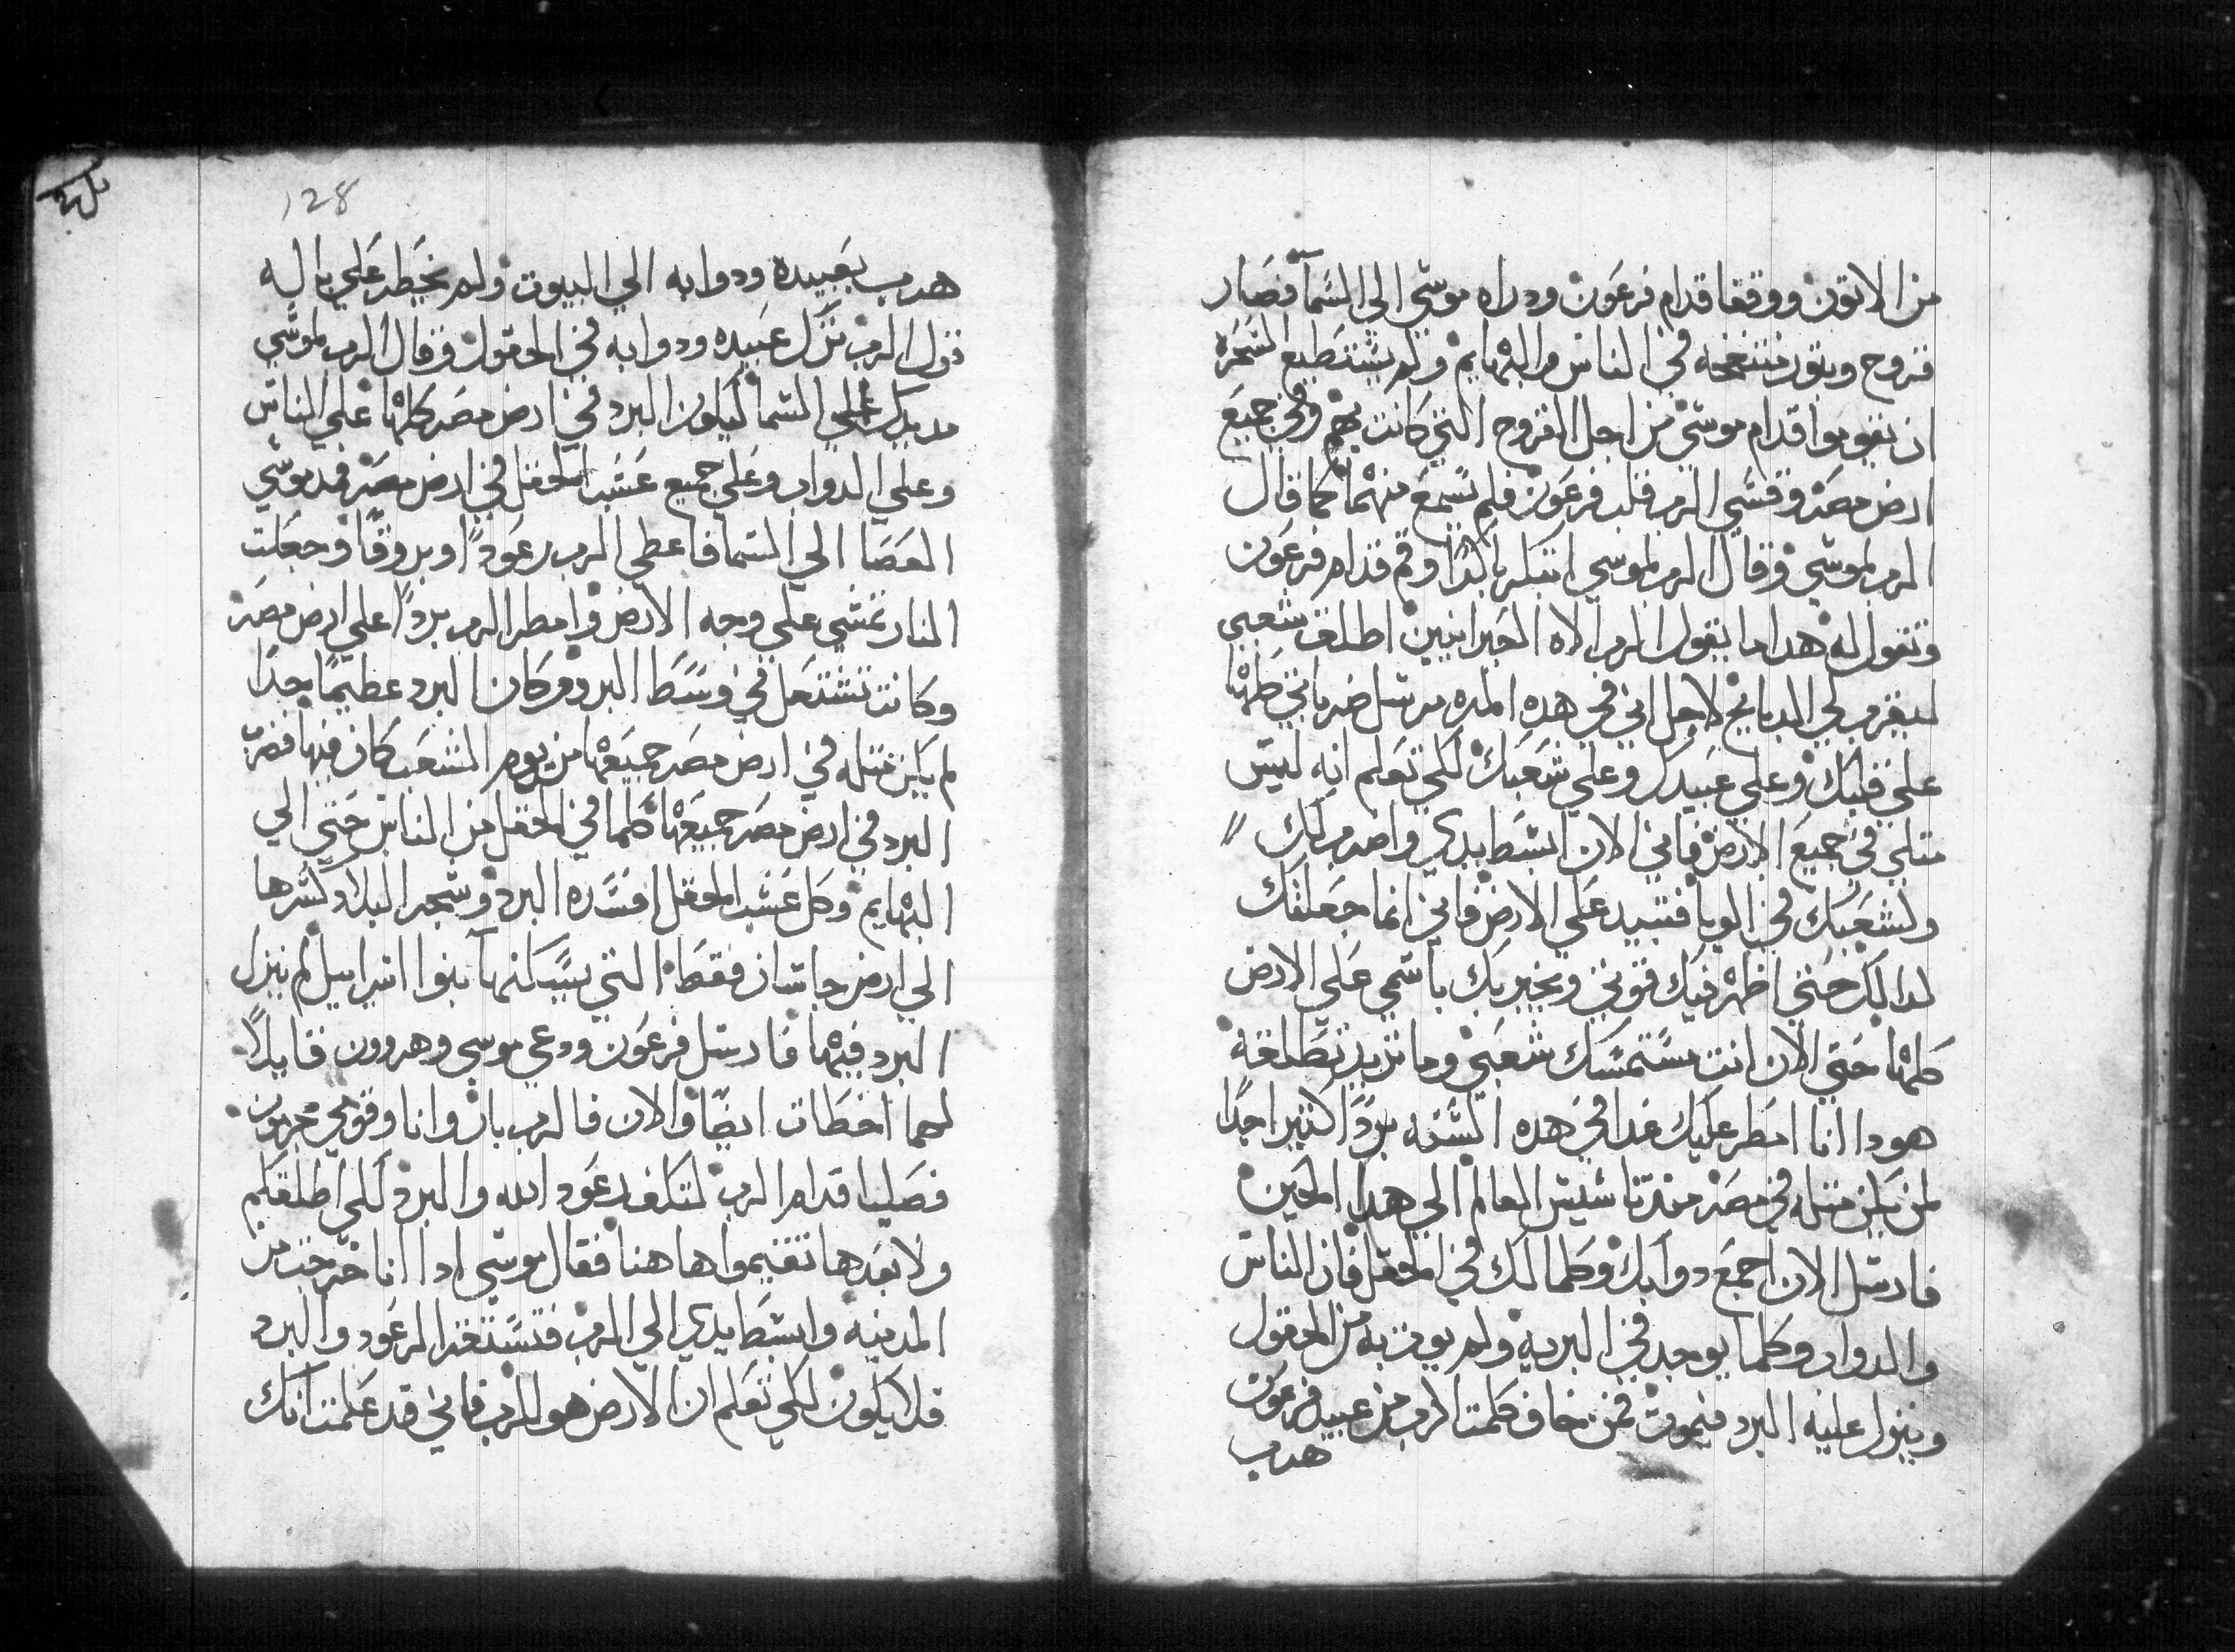 من الاتون ووقفا قدام فرعون ودراه موسي الي السمآ فصار
قروح وبتور منتفخه في الناس والبهايم ولم يستطيع السحره
ان يقوموا قدام موسي من اجل القروح التي كانت بهم وفي جميع
ارض مصر وقسي الرب قلب فرعون فلم يسمع منهما كما قال
الرب لموسي وقال الرب لموسي ابتكر باكرا وقم قدام فرعون
وتقول له هدا ما يقول الرب الاه العبرانيين اطلق شعبي
ليقرب لي الدبايح لاجل اني في هده المره مرسل ضرباتي كلها
علي قلبك وعلي عبيدك وعلي شعبك لكي تعلم انه ليس
متلي في جميع الارض فاني الان ابسط يدي واضربك
ولشعبك في الوبا فتبيد علي الارض فاني انما جعلتك
لدالك حتي اظهر فيك قوتي ويخبر بك باسمي علي الارض
كلها حتي الان انت مستمسك شعبي وما تريد تطلقه
هودا انا امطر عليك غدا في هده السنه بردًا كتيرا جدًا
لمن يكن متله في مصر مند تاسيس العالم الي هدا الحين
فارسل الان اجمع دوابك وكلما لك في الحقل فان الناس
والدواب وكلما يوجد في البريه ولم يوت به من الحقول
وينزل عليه البرد فيموت فمن خاف كلمت الرب من عبيد فرعون
هرب
128
هرب بعبيده ودوابه الي البيوت ولم يخطر علي باله
قول الرب ترك عبيده ودوابه في الحقول وقال الرب لموسي
مد يدك الي السما ليكون البرد في ارض مصر كلها علي الناس
وعلي الدواب وعلي جميع عشب الحقل في ارض مصر فمد موسي
العصا الي السما فاعطي الرب رعودًا وبروقًا وجعلت
النار تمشي علي وجه الارض وامطر الرب بردًا علي ارض مصر
وكانت تشتعل في وسط البرد وكان البرد عظيمًا جدًا
لم يكن متله في ارض مصر جميعها من يوم الشعب كان فيها فضرب
البرد في ارض مصر جميعها كلما في الحقل من الناس حتي الي
البهايم وكل عشب الحقل افسده البرد وشجر البلاد كسرها
الي ارض جاسان فقط التي يسكنها بنوا اسراييل لم ينزل
البرد فيها فارسل فرعون ودعي موسي وهرون قايلاً
لهما اخطات ايضًا والان فالرب بار وانا وقومي مجرمون
فصليا قدام الرب لتكف رعود الله والبرد لكي اطلقكم
ولا بعدها تقيموا ها هنا فقال موسي ادا انا خرجت من
المدينه وابسط يدي الي الرب فتستقر الرعود والبرد
فلا يكون لكي تعلم ان الارض هو للرب فاني قد علمت انك